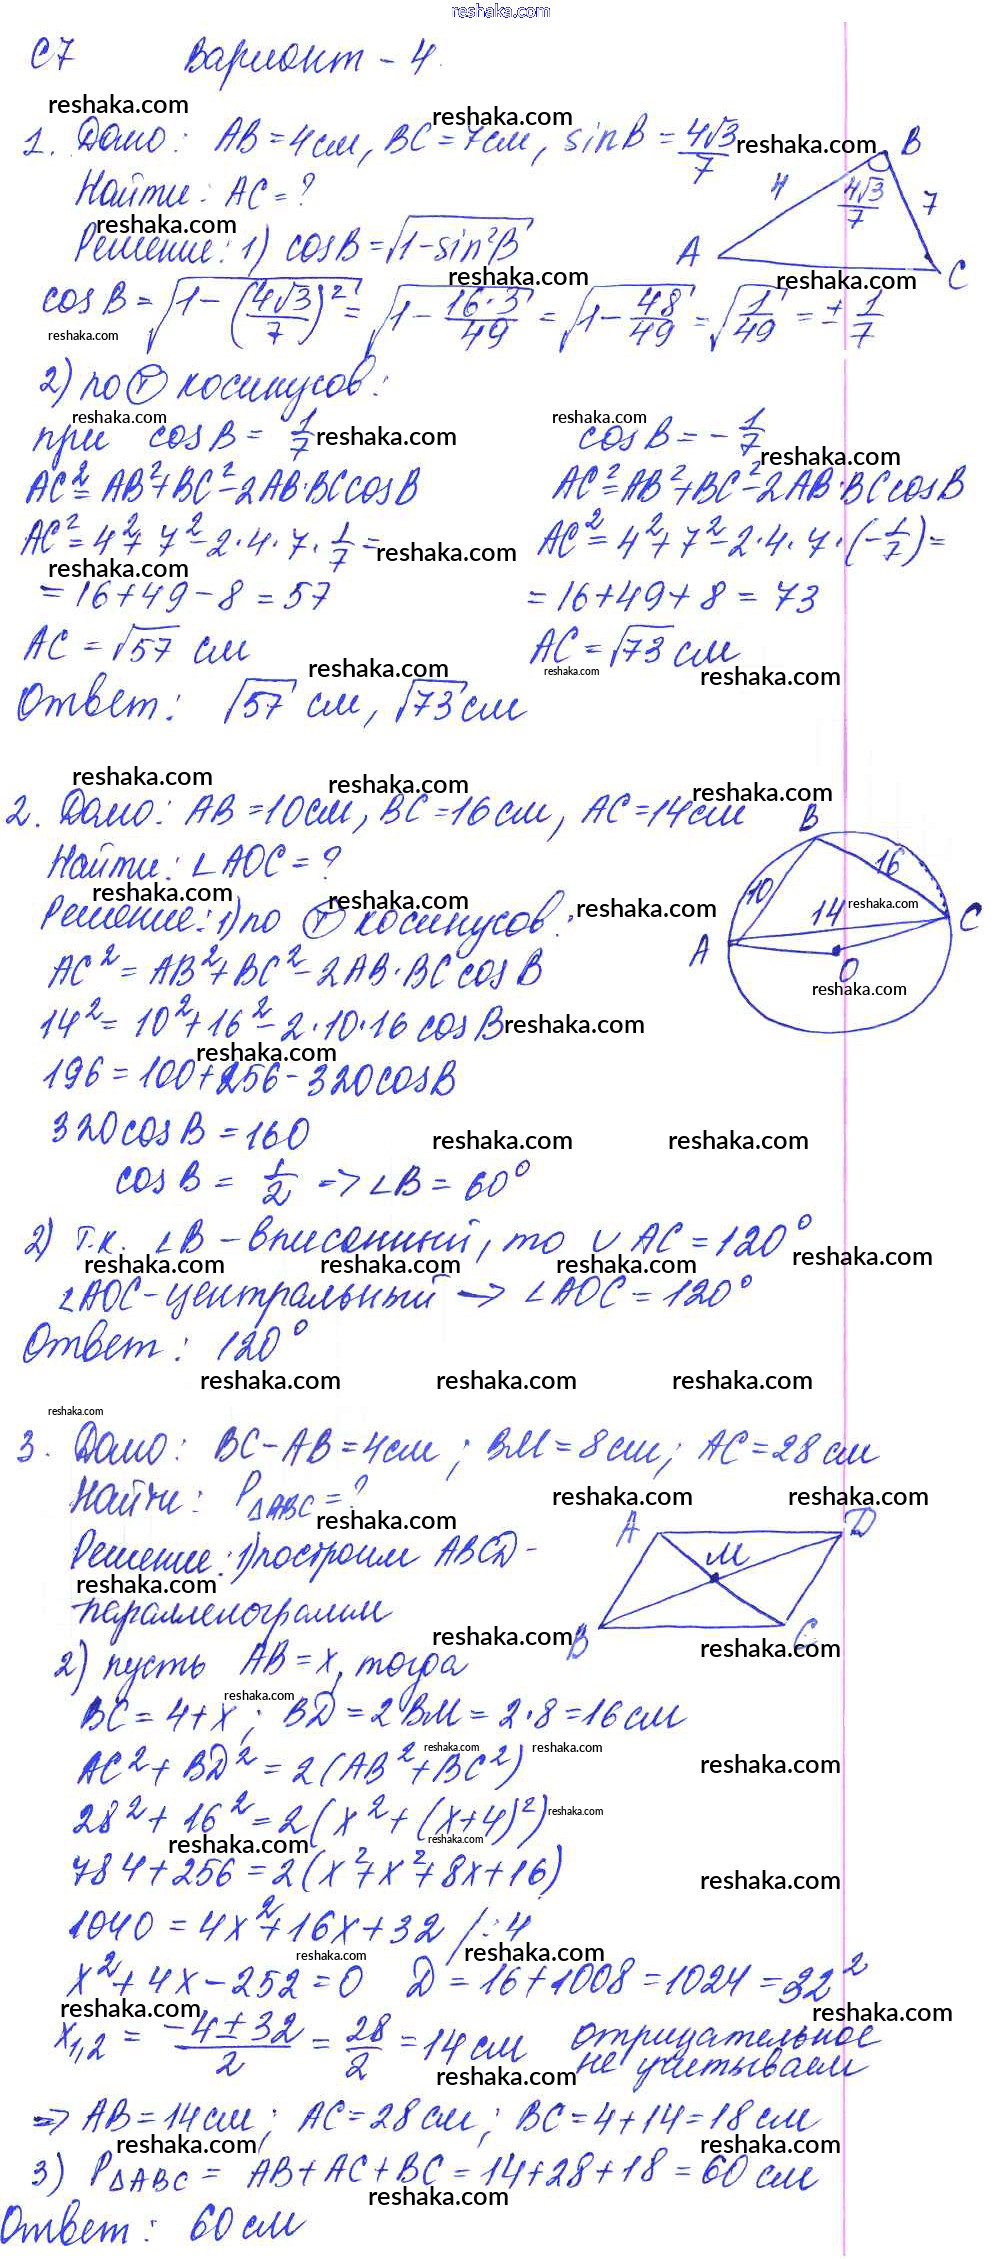 reshaka.com
С7 Вариант - 4.
1. Дано: AB = 4 см, BC = 7 см, sin B = 4√3/7
Найти: AC = ?
Решение: 1) cos B = √(1 - sin²B)
cos B = √(1 - (4√3/7)²) = √(1 - 16·3/49) = √(1 - 48/49) = √(1/49) = ± 1/7
B
4
4√3/7
7
A
C
2) по Ⓣ косинусов:
при cos B = 1/7 cos B = - 1/7
AC² = AB² + BC² - 2AB·BC cos B AC² = AB² + BC² - 2AB·BC cos B
AC² = 4² + 7² - 2·4·7·1/7 = AC² = 4² + 7² - 2·4·7·(-1/7) =
= 16 + 49 - 8 = 57 = 16 + 49 + 8 = 73
AC = √57 см AC = √73 см
Ответ: √57 см, √73 см
2. Дано: AB = 10 см, BC = 16 см, AC = 14 см
Найти: ∠AOC = ?
Решение: 1) по Ⓣ косинусов:
AC² = AB² + BC² - 2AB·BC cos B
14² = 10² + 16² - 2·10·16 cos B
196 = 100 + 256 - 320 cos B
320 cos B = 160
cos B = 1/2 => ∠B = 60°
B
16
10
14
A
C
O
2) т.к. ∠B - вписанный, то ∪ AC = 120°
∠AOC - центральный -> ∠AOC = 120°
Ответ: 120°
3. Дано: BC - AB = 4 см; BM = 8 см; AC = 28 см
Найти: P△ABC = ?
Решение: 1) построим ABCD -
параллелограмм
A
D
M
B
C
2) пусть AB = x, тогда
BC = 4 + x; BD = 2 BM = 2·8 = 16 см
AC² + BD² = 2(AB² + BC²)
28² + 16² = 2(x² + (x+4)²)
784 + 256 = 2(x² + x² + 8x + 16)
1040 = 4x² + 16x + 32 /:4
x² + 4x - 252 = 0 D = 16 + 1008 = 1024 = 32²
x1,2 = (-4 ± 32)/2 = 28/2 = 14 см отрицательное
не учитываем
=> AB = 14 см; AC = 28 см; BC = 4 + 14 = 18 см
3) P△ABC = AB + AC + BC = 14 + 28 + 18 = 60 см
Ответ: 60 см